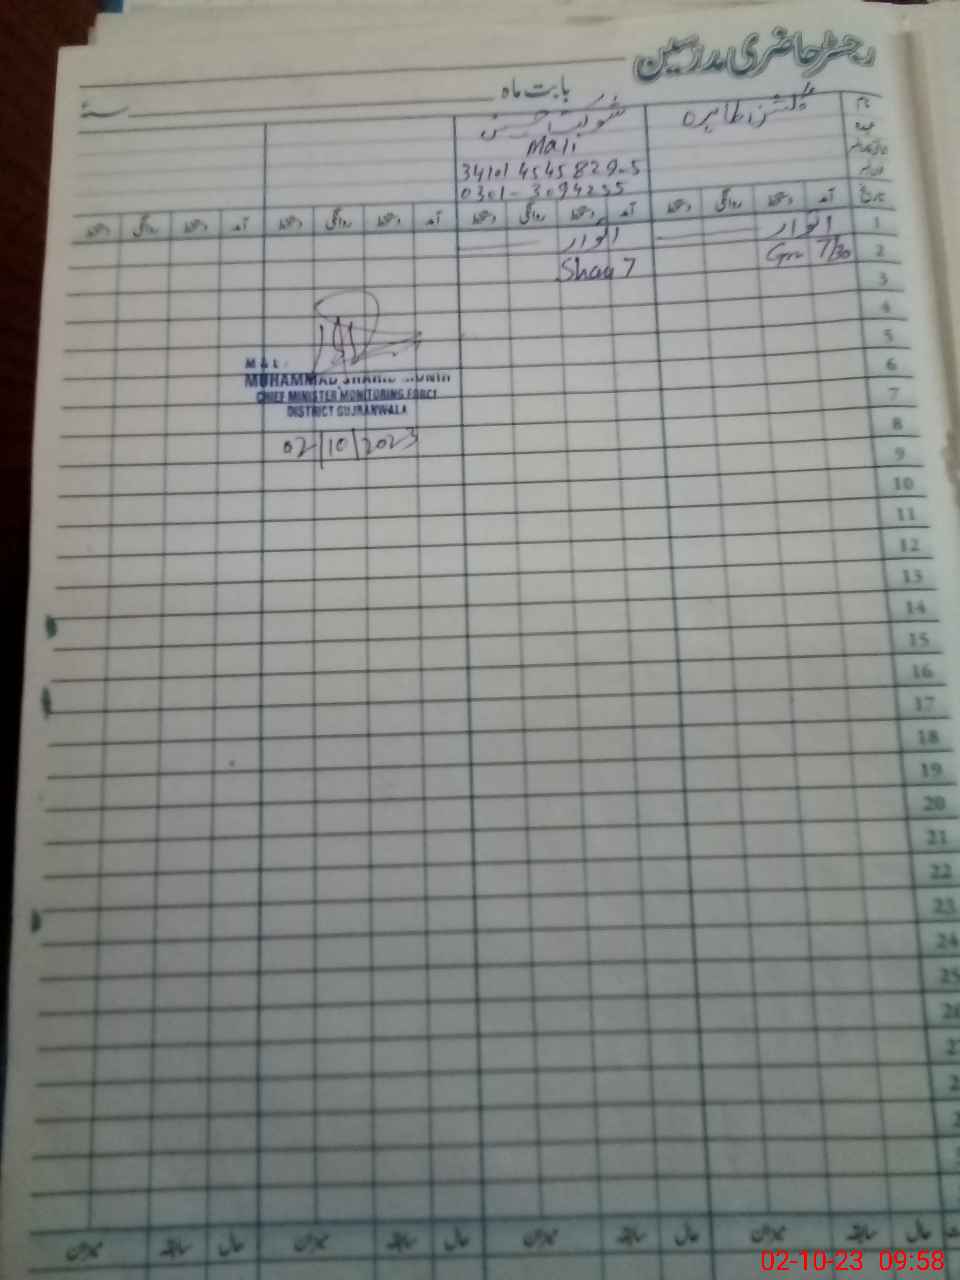 رجسٹر حاضری مدرسین
بابت ماہ سنہ
نام
عہدہ
شوکت حسن
Mali
34101 4545829-5
0301-3094255
تاریخ آمد دستخط روانگی دستخط آمد دستخط روانگی دستخط آمد دستخط روانگی دستخط آمد دستخط روانگی دستخط
1 اتوار اتوار
2 7/30 Shau 7
3
4
5
6
7
8
9
10
11
12
13
14
15
16
17
18
19
20
21
22
23
24
25
MUHAMMAD SHAHID MUNIR
CHIEF MINISTER MONITORING FORCE
DISTRICT GUJRANWALA
02/10/2023
حال سابقہ میزان حال سابقہ میزان حال سابقہ میزان حال سابقہ میزان
02-10-23 09:58